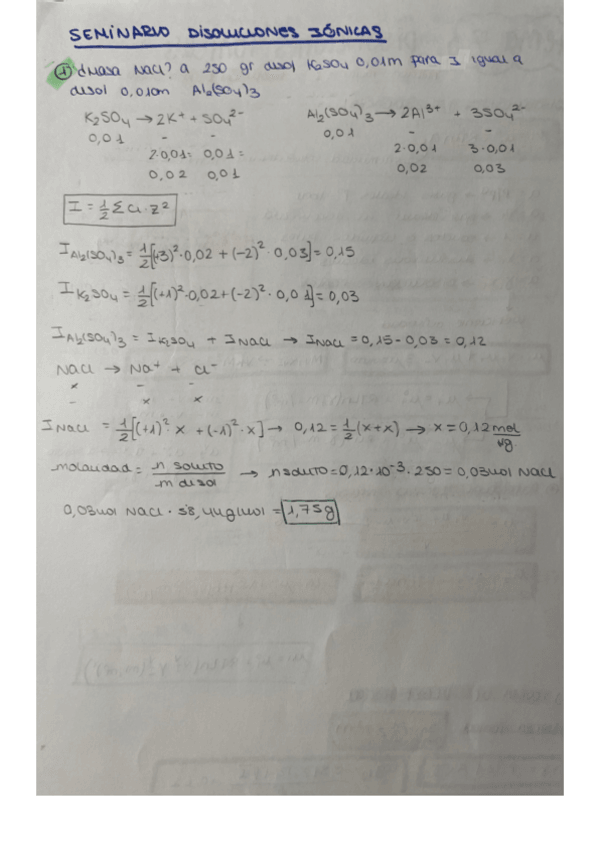 SEMINARIO DISOLUCIONES IÓNICAS
① ¿masa NaCl? a 250 gr disol K₂SO₄ 0,01m para I igual a
disol 0,01m Al₂(SO₄)₃
K₂SO₄ → 2K⁺ + SO₄²⁻ Al₂(SO₄)₃ → 2Al³⁺ + 3SO₄²⁻
0,01 - - 0,01 - -
2·0,01= 0,01= 2·0,01 3·0,01
0,02 0,01 0,02 0,03
I = 1/2 Σ ci · z²
I Al₂(SO₄)₃ = 1/2 [(+3)²·0,02 + (-2)²·0,03] = 0,15
I K₂SO₄ = 1/2 [(+1)²·0,02 + (-2)²·0,01] = 0,03
I Al₂(SO₄)₃ = I K₂SO₄ + I NaCl → I NaCl = 0,15 - 0,03 = 0,12
NaCl → Na⁺ + Cl⁻
x - -
- x x
I NaCl = 1/2 [(+1)² x + (-1)² · x] → 0,12 = 1/2 (x+x) → x = 0,12 mol/kg
molalidad = n soluto / m disol → n soluto = 0,12·10⁻³·250 = 0,03mol NaCl
0,03mol NaCl · 58,44g/mol = 1,75g